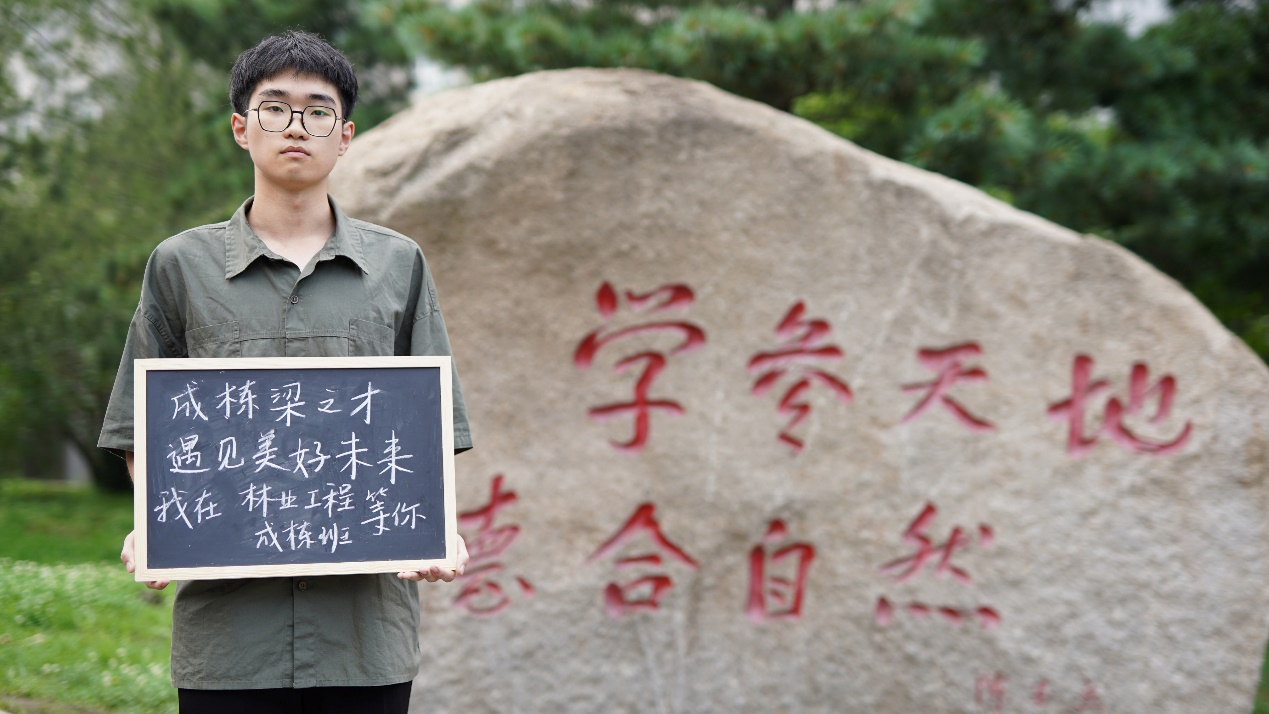 成栋梁之才
遇见美好未来
我在 林业工程 等你
成栋班
学参天地
德合自然